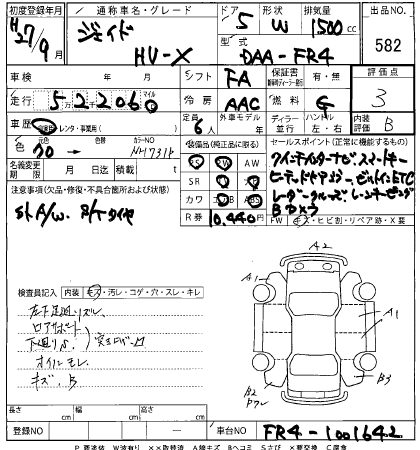 初度登録年月 通称車名・グレード ドア 形状 排気量 出品NO
H27/9 ジェイド HV-X 5 W 1500cc 582
型式 DAA-FR4
車検 年 月 シフト FA 保証書 有・無 評価点
走行 52206 マイル km 冷房 AAC 燃料 G 3
車歴 自家用・レンタ・事業用( ) 定員 6人 外車モデル 年 ディーラー 並行 ハンドル 左・右 内装評価 B
色 元色 カラーNO NH731P
装備品(純正品に限る) セールスポイント(正常に機能するもの)
PS PW AW
インターナビ スマートキー
名義変更期限 月 日 積載量 t
SR
ヒーテッドドアミラー ビルトインETC
注意事項(欠品・修復・不具合箇所および状態)
カワ ABS
レーダークルーズ
社A/W
R券 10,440円
FW キズ・ヒビ割・リペア跡・X要
A2
A1
A1
B2
B3
検査員記入 内装 キズ・汚レ・コゲ・穴・スレ・キレ
ロアサポート
下廻りS
オイルモレ
キズ、B
長さ cm 幅 cm 高さ cm
登録NO 車台NO FR4-1001642
P 要塗装 W波有り ××取替済 A線キズ Bヘコミ Sさび X要交換 C腐食